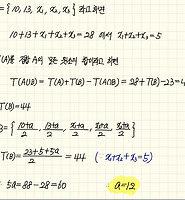 = {10, 13, x₁, x₂, x₃} 라고 하면
10+13+x₁+x₂+x₃=28 에서 x₁+x₂+x₃=5
(A)를 집합 A의 모든 원소의 합이라고 하면
T(A∪B) = T(A)+T(B)-T(A∩B) = 28+T(B)-23=4
T(B)=44
= { 10+a/2, 13+a/2, x₁+a/2, x₂+a/2, x₃+a/2 }
T(B) = 23+5+5a/2 = 44 ( x₁+x₂+x₃=5 )
5a=88-28=60 a=12